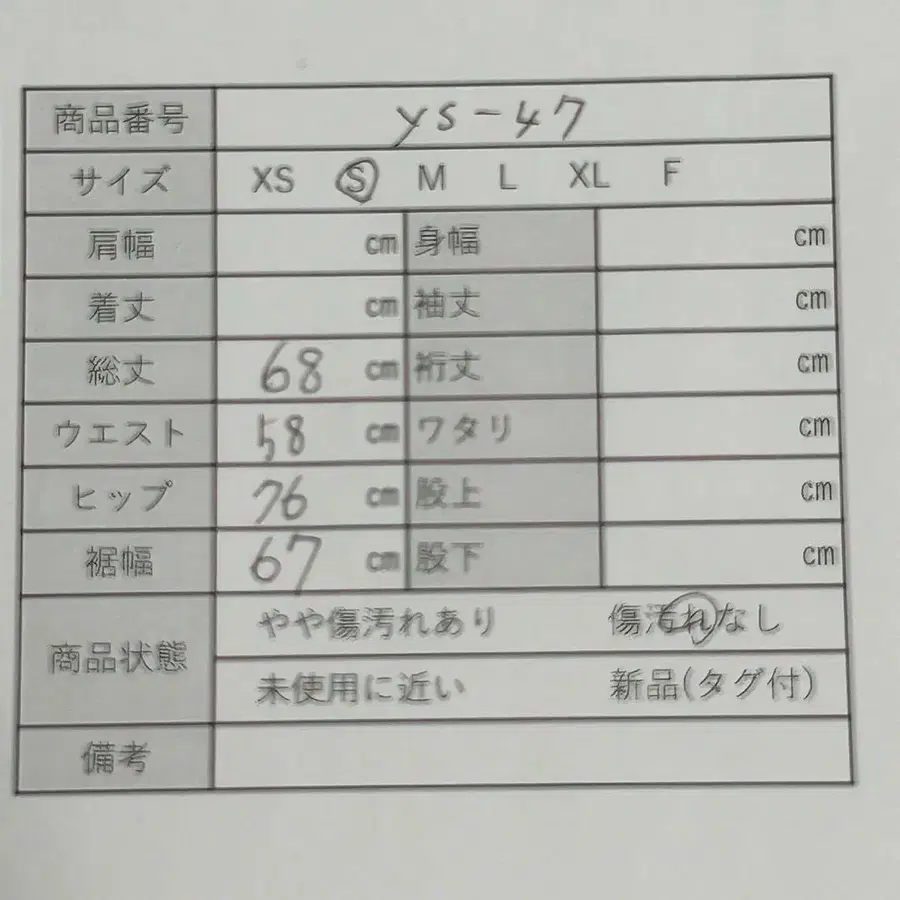 商品番号 ys-47
サイズ XS S M L XL F
肩幅 cm 身幅 cm
着丈 cm 袖丈 cm
総丈 68 cm 裄丈 cm
ウエスト 58 cm ワタリ cm
ヒップ 76 cm 股上 cm
裾幅 67 cm 股下 cm
商品状態 やや傷汚れあり 傷汚れなし
未使用に近い 新品(タグ付)
備考